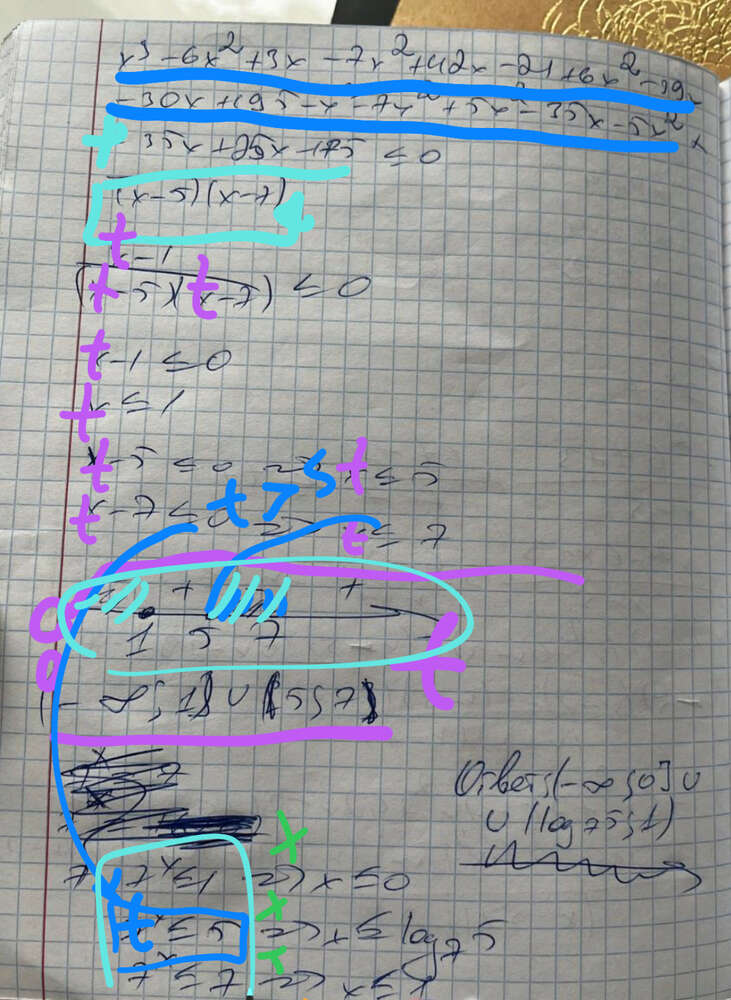 x³ - 6x² + 3x - 7x² + 42x - 21 + 6x² - 39x
- 30x + 195 - x³ - 7x² + 5x² - 35x - 5x² +
+ 35x + 25x - 175 ≤ 0
(x-5)(x-7)
t-1
(t-5)(t-7) ≤ 0
t-1 ≤ 0
t ≤ 1
t-5 ≤ 0 t ≤ 5
t > 5
t-7 ≤ 0 t ≤ 7
- + - +
1 5 7 t
(-∞; 1] ∪ (5; 7)
Ответ: (-∞; 0] ∪
∪ (log₇5; 1)
7ˣ ≤ 1 <=> x ≤ 0
7ˣ ≤ 5 <=> x ≤ log₇5
7ˣ ≤ 7 <=> x ≤ 1